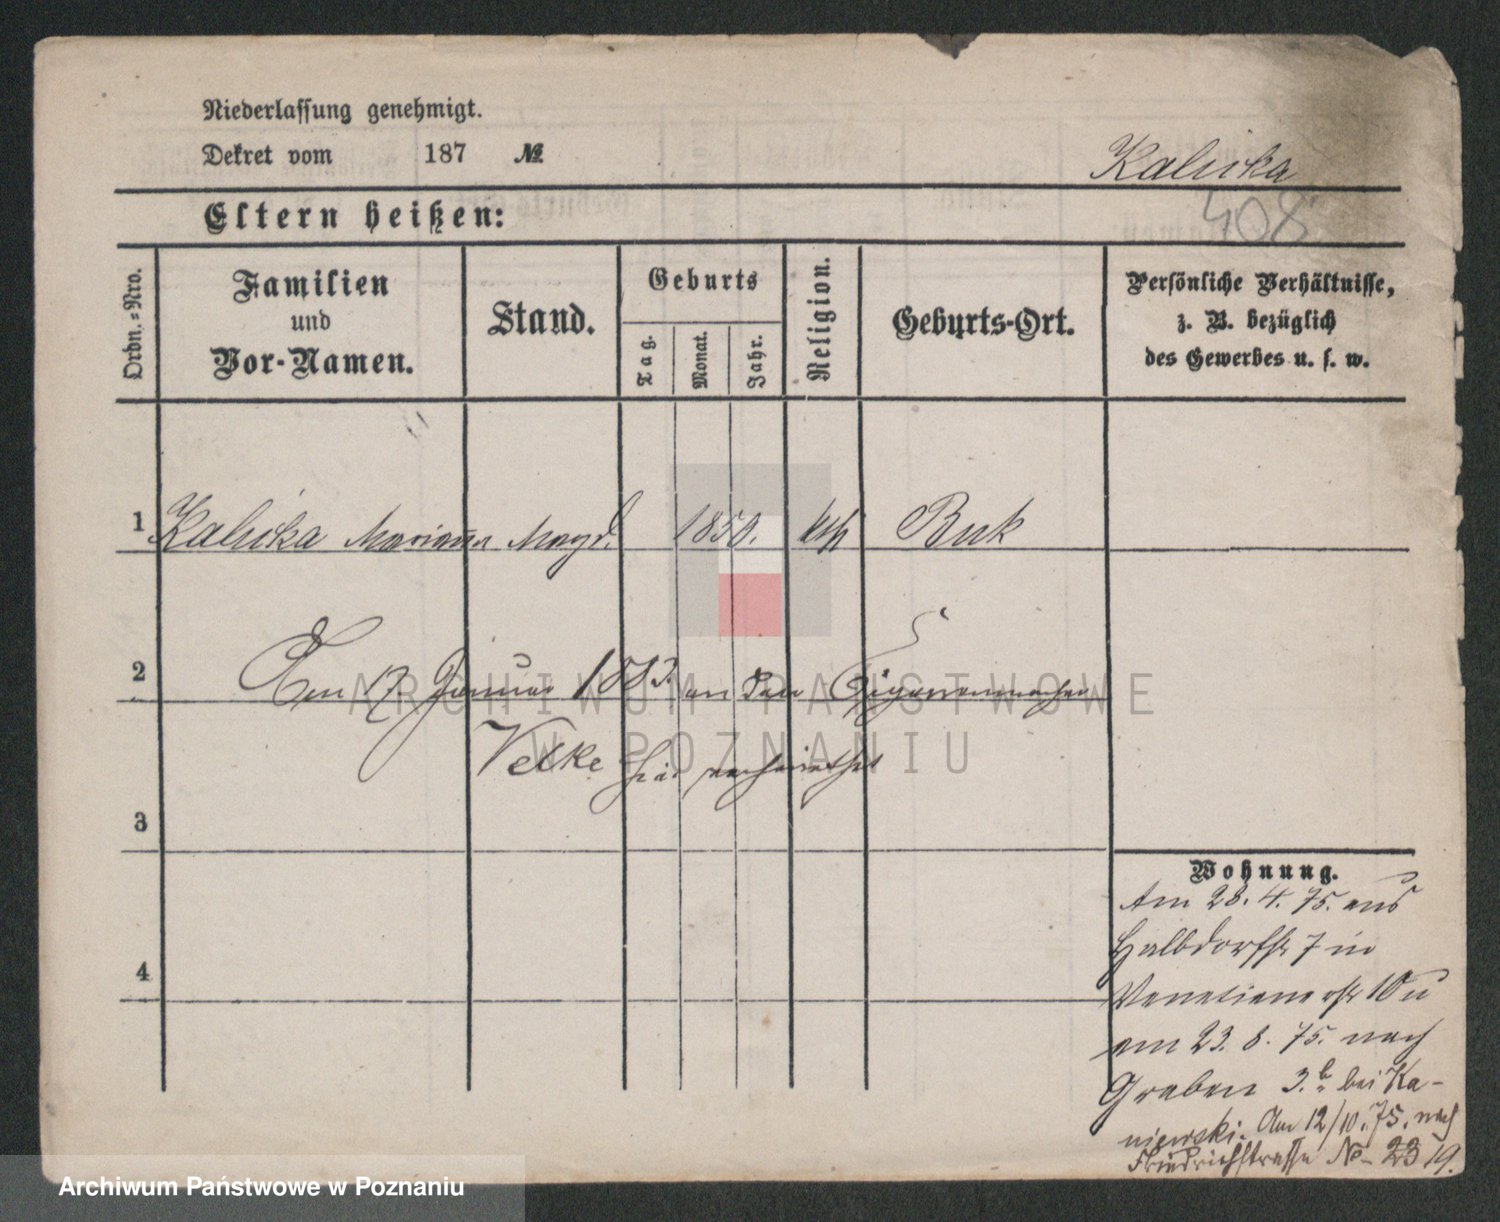 Niederlassung genehmigt.
Dekret vom 187 №
Kaluska
408
Eltern heißen:
Ordn.-Nro.
Familien
und
Vor-Namen.
Stand.
Geburts
Tag.
Monat.
Jahr.
Religion.
Geburts-Ort.
Persönliche Verhältnisse,
z. B. bezüglich
des Gewerbes u. s. w.
1 Kaluska Marianna Magd. 1850. kth Buk
2 Am 17. Januar 1883. an den Cigarrenmacher
Velke hier verheirathet
3
Wohnung.
Am 28. 4. 75. aus
Halbdorfstr 7 in
Venetianerstr 10 u
am 23. 8. 75. nach
Graben 3.b bei Ka-
niewski. Am 12/10. 75. nach
Friedrichstrasse No 23 19.
4
ARCHIWUM PAŃSTWOWE
W POZNANIU
Archiwum Państwowe w Poznaniu